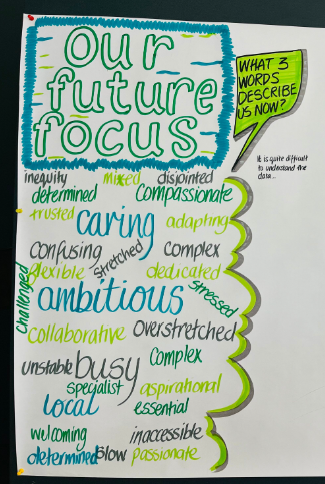 Our
future
focus
WHAT 3
WORDS
DESCRIBE
US NOW?
It is quite difficult
to understand the
data...
inequity mixed disjointed
determined compassionate
trusted caring adapting
confusing stretched complex
flexible dedicated
challenged ambitious stressed
collaborative overstretched
unstable busy complex
specialist aspirational
local essential
welcoming inaccessible
determined slow passionate